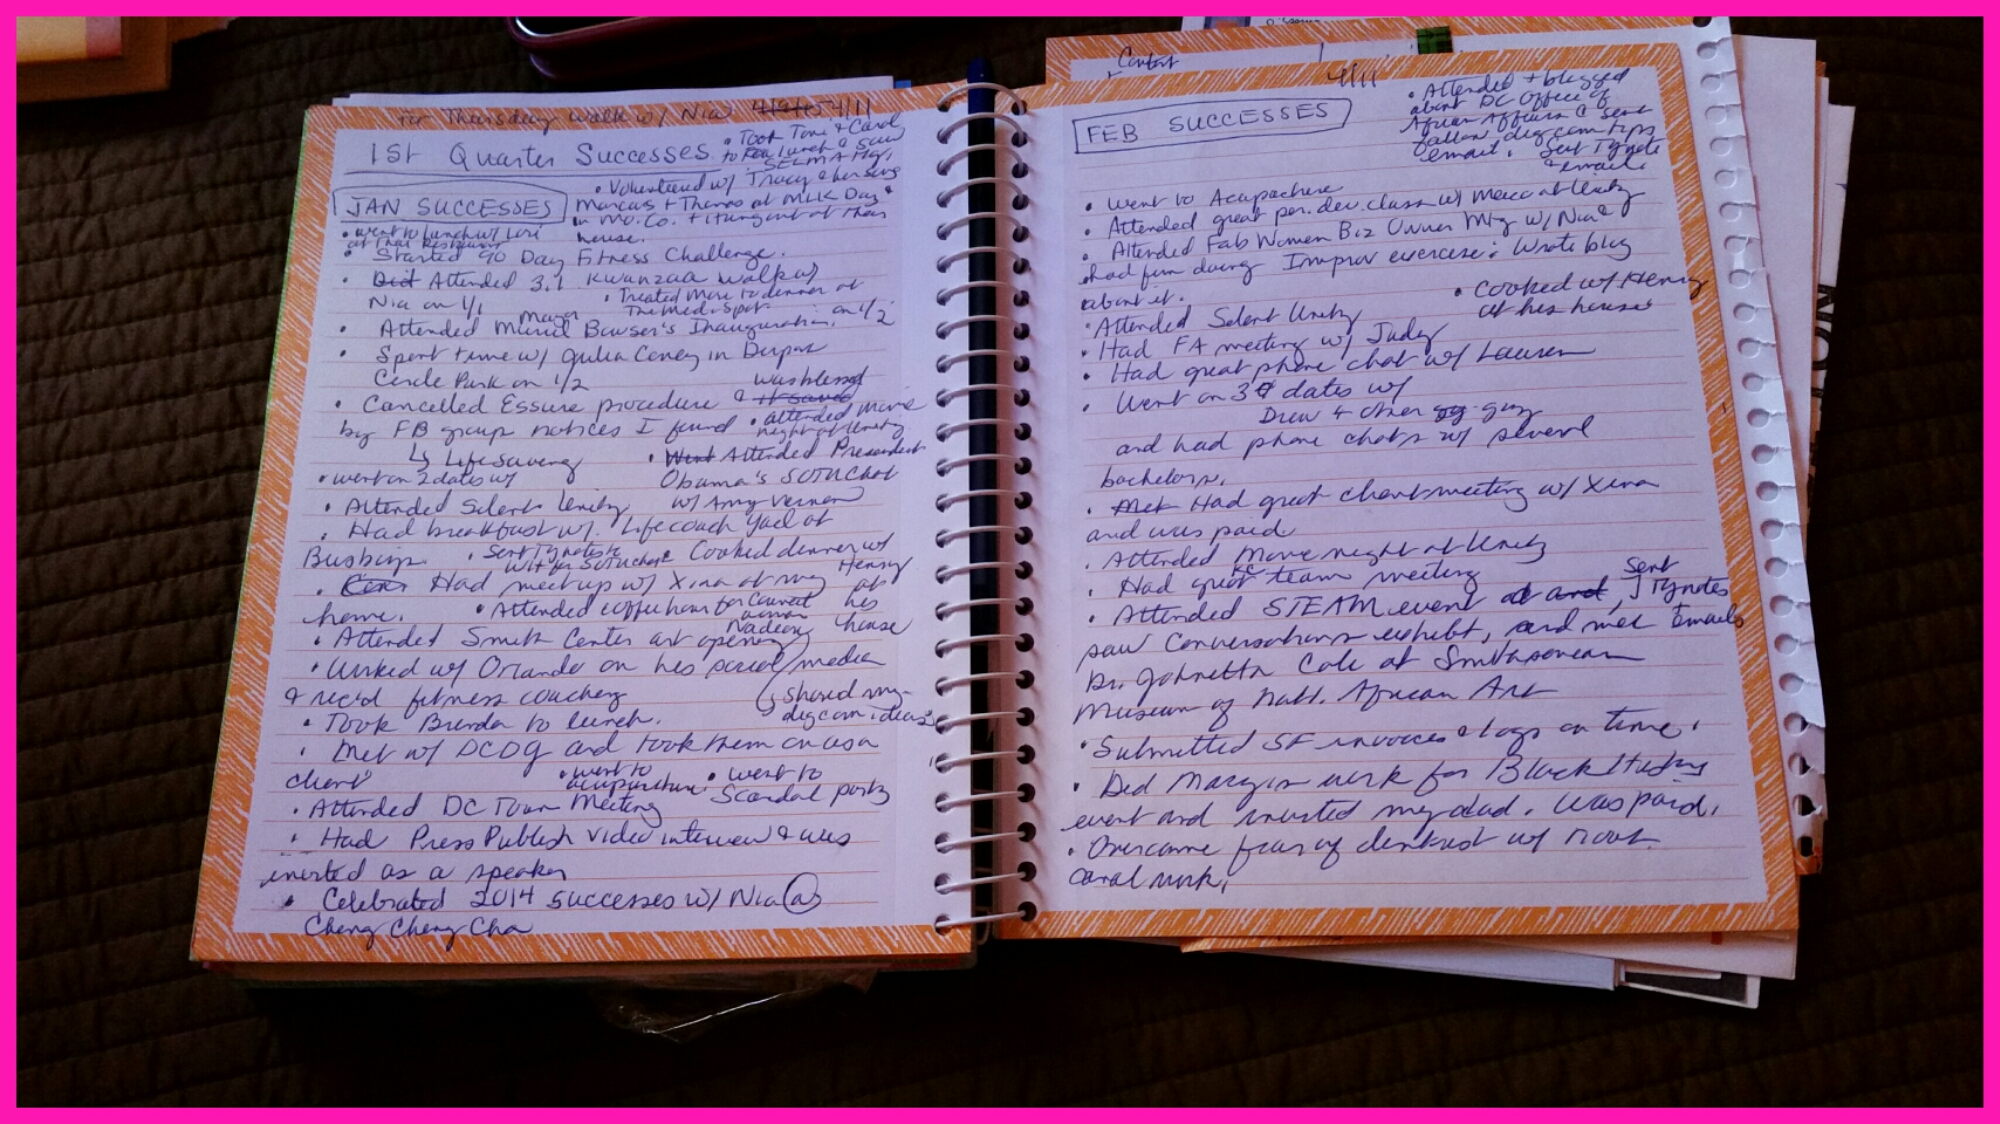 for Thursday walk w/ Nia 4/11
1st Quarter Successes
• Took Toni & Carol
to lunch & saw
SELMA
JAN SUCCESSES
• Volunteered w/ Tracy & her sons
Marcus + Thomas at MLK Day
in Mo. Co. + hung out at their
house.
• went to lunch w/ Lori
at Thai Restaurant
• Started 90 Day Fitness Challenge.
• Did Attended 3.1 Kwanzaa walk w/
Nia on 1/1
• Treated Mom to dinner at
The Med. Spot.
• Attended Mayor Muriel Bowser's Inauguration on 1/2
• Spent time w/ Julia Coney in Dupont
Circle Park on 1/2
• Cancelled Essure procedure & it saved was blessed
by FB group notices I found
↳ Life saving
• attended movie
night at Unity
• went on 2 dates w/
• Went Attended President
Obama's SOTU Chat
w/ Amy Vernon
• Attended Silent Unity
• Had breakfast w/ Lifecoach Yael at
Busboys.
• Sent Tynotes
• Cooked dinner w/
Henry
at
his
house
• Had meetup w/ Xina at my
home.
• Attended coffee hour for
Nadeau
• Attended Smith Center art opening
• Worked w/ Orlando on his social media
& rec'd fitness coaching
shared my
digcom ideas
• Took Brenda to lunch.
• Met w/ DCDG and took them on as a
client
• went to
acupuncture.
• went to
Scandal party
• Attended DC Town Meeting
• Had PressPublish video interview & was
invited as a speaker
• Celebrated 2014 successes w/ Nia @
Cheng Cheng Cha
Content
4/11
FEB SUCCESSES
• Attended + blogged
about DC Office of
African Affairs & sent
follow digcom tips
email. Sent Tynote
email.
• Went to Acupuncture
• Attended great per. dev. class w/ at Unity
• Attended Fab Women Biz Owner Mtg w/ Nia &
had fun doing Improv exercise. Wrote blog
about it.
• Cooked w/ Henry
at his house
• Attended Silent Unity
• Had FA meeting w/ Judy
• Had great phone chat w/ Lauren
• Went on 3 dates w/
Drew + other guy
and had phone chats w/ several
bachelors.
• Met Had great client meeting w/ Xina
and was paid
• Attended Movie night at Unity
• Had great KC team meeting
• Attended STEAM event at and,
Sent
Tynotes
Emails
saw Conversations exhibit, and met
Dr. Johnetta Cole at Smithsonian
Museum of Natl. African Art
• Submitted SF invoices & logs on time.
• Did Margin work for Black History
event and invited my dad. Was paid.
• Overcame fear of dentist w/ root
canal work.